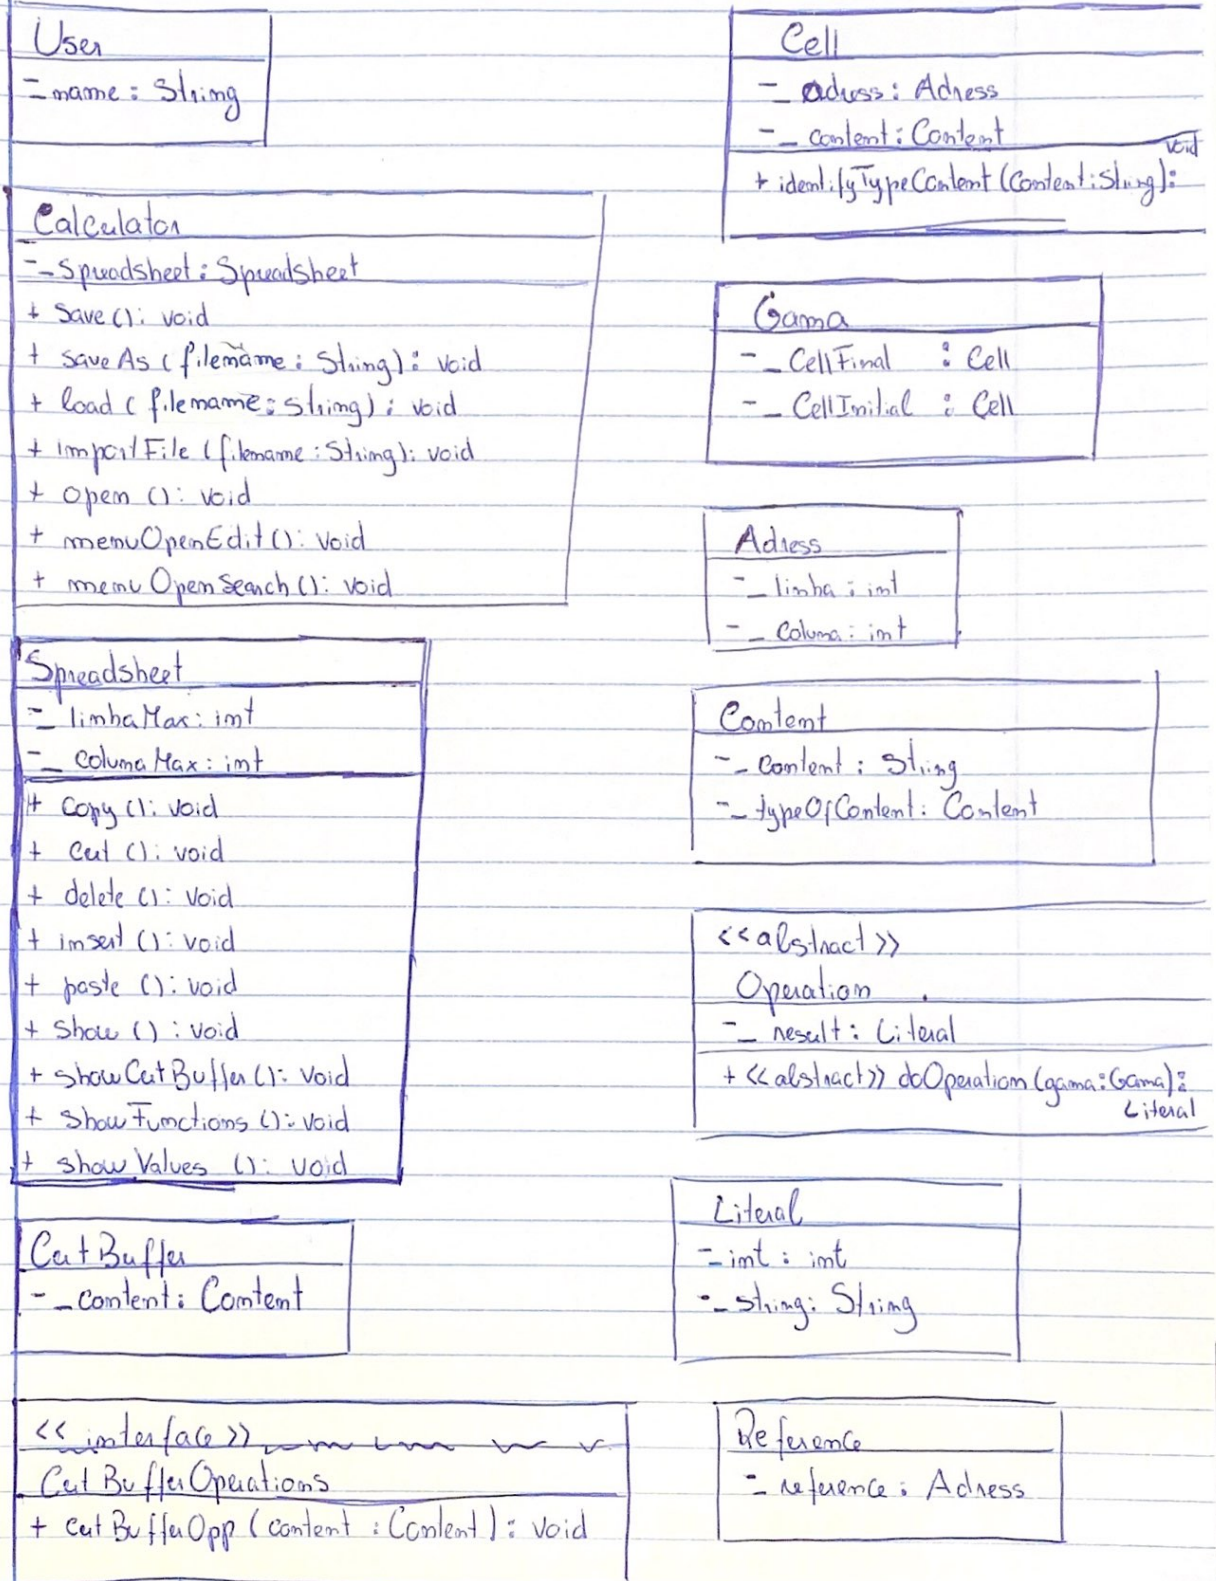 User
- name : String
Calculator
- _ Spreadsheet : Spreadsheet
+ Save () : void
+ saveAs ( filename : String ) : void
+ load ( filename : string ) : void
+ importFile ( filename : String ) : void
+ open () : void
+ menuOpenEdit () : void
+ menuOpenSearch () : void
Spreadsheet
- _ linhaMax : int
- _ colunaMax : int
+ copy () : void
+ cut () : void
+ delete () : void
+ insert () : void
+ paste () : void
+ show () : void
+ showCutBuffer () : void
+ showFunctions () : void
+ showValues () : void
CutBuffer
- _ content : Content
<< interface >>
CutBufferOperations
+ cutBufferOpp ( content : Content ) : void
Cell
- _ adress : Adress
- _ content : Content
+ identifyTypeContent (Content : String) : void
Gama
- _ CellFinal : Cell
- _ CellInitial : Cell
Adress
- _ linha : int
- _ coluna : int
Content
- _ content : String
- _ typeOfContent : Content
<<abstract>>
Operation
- _ result : Literal
+ <<abstract>> doOperation (gama : Gama) :
Literal
Literal
- _ int : int
- _ string : String
Reference
- _ reference : Adress